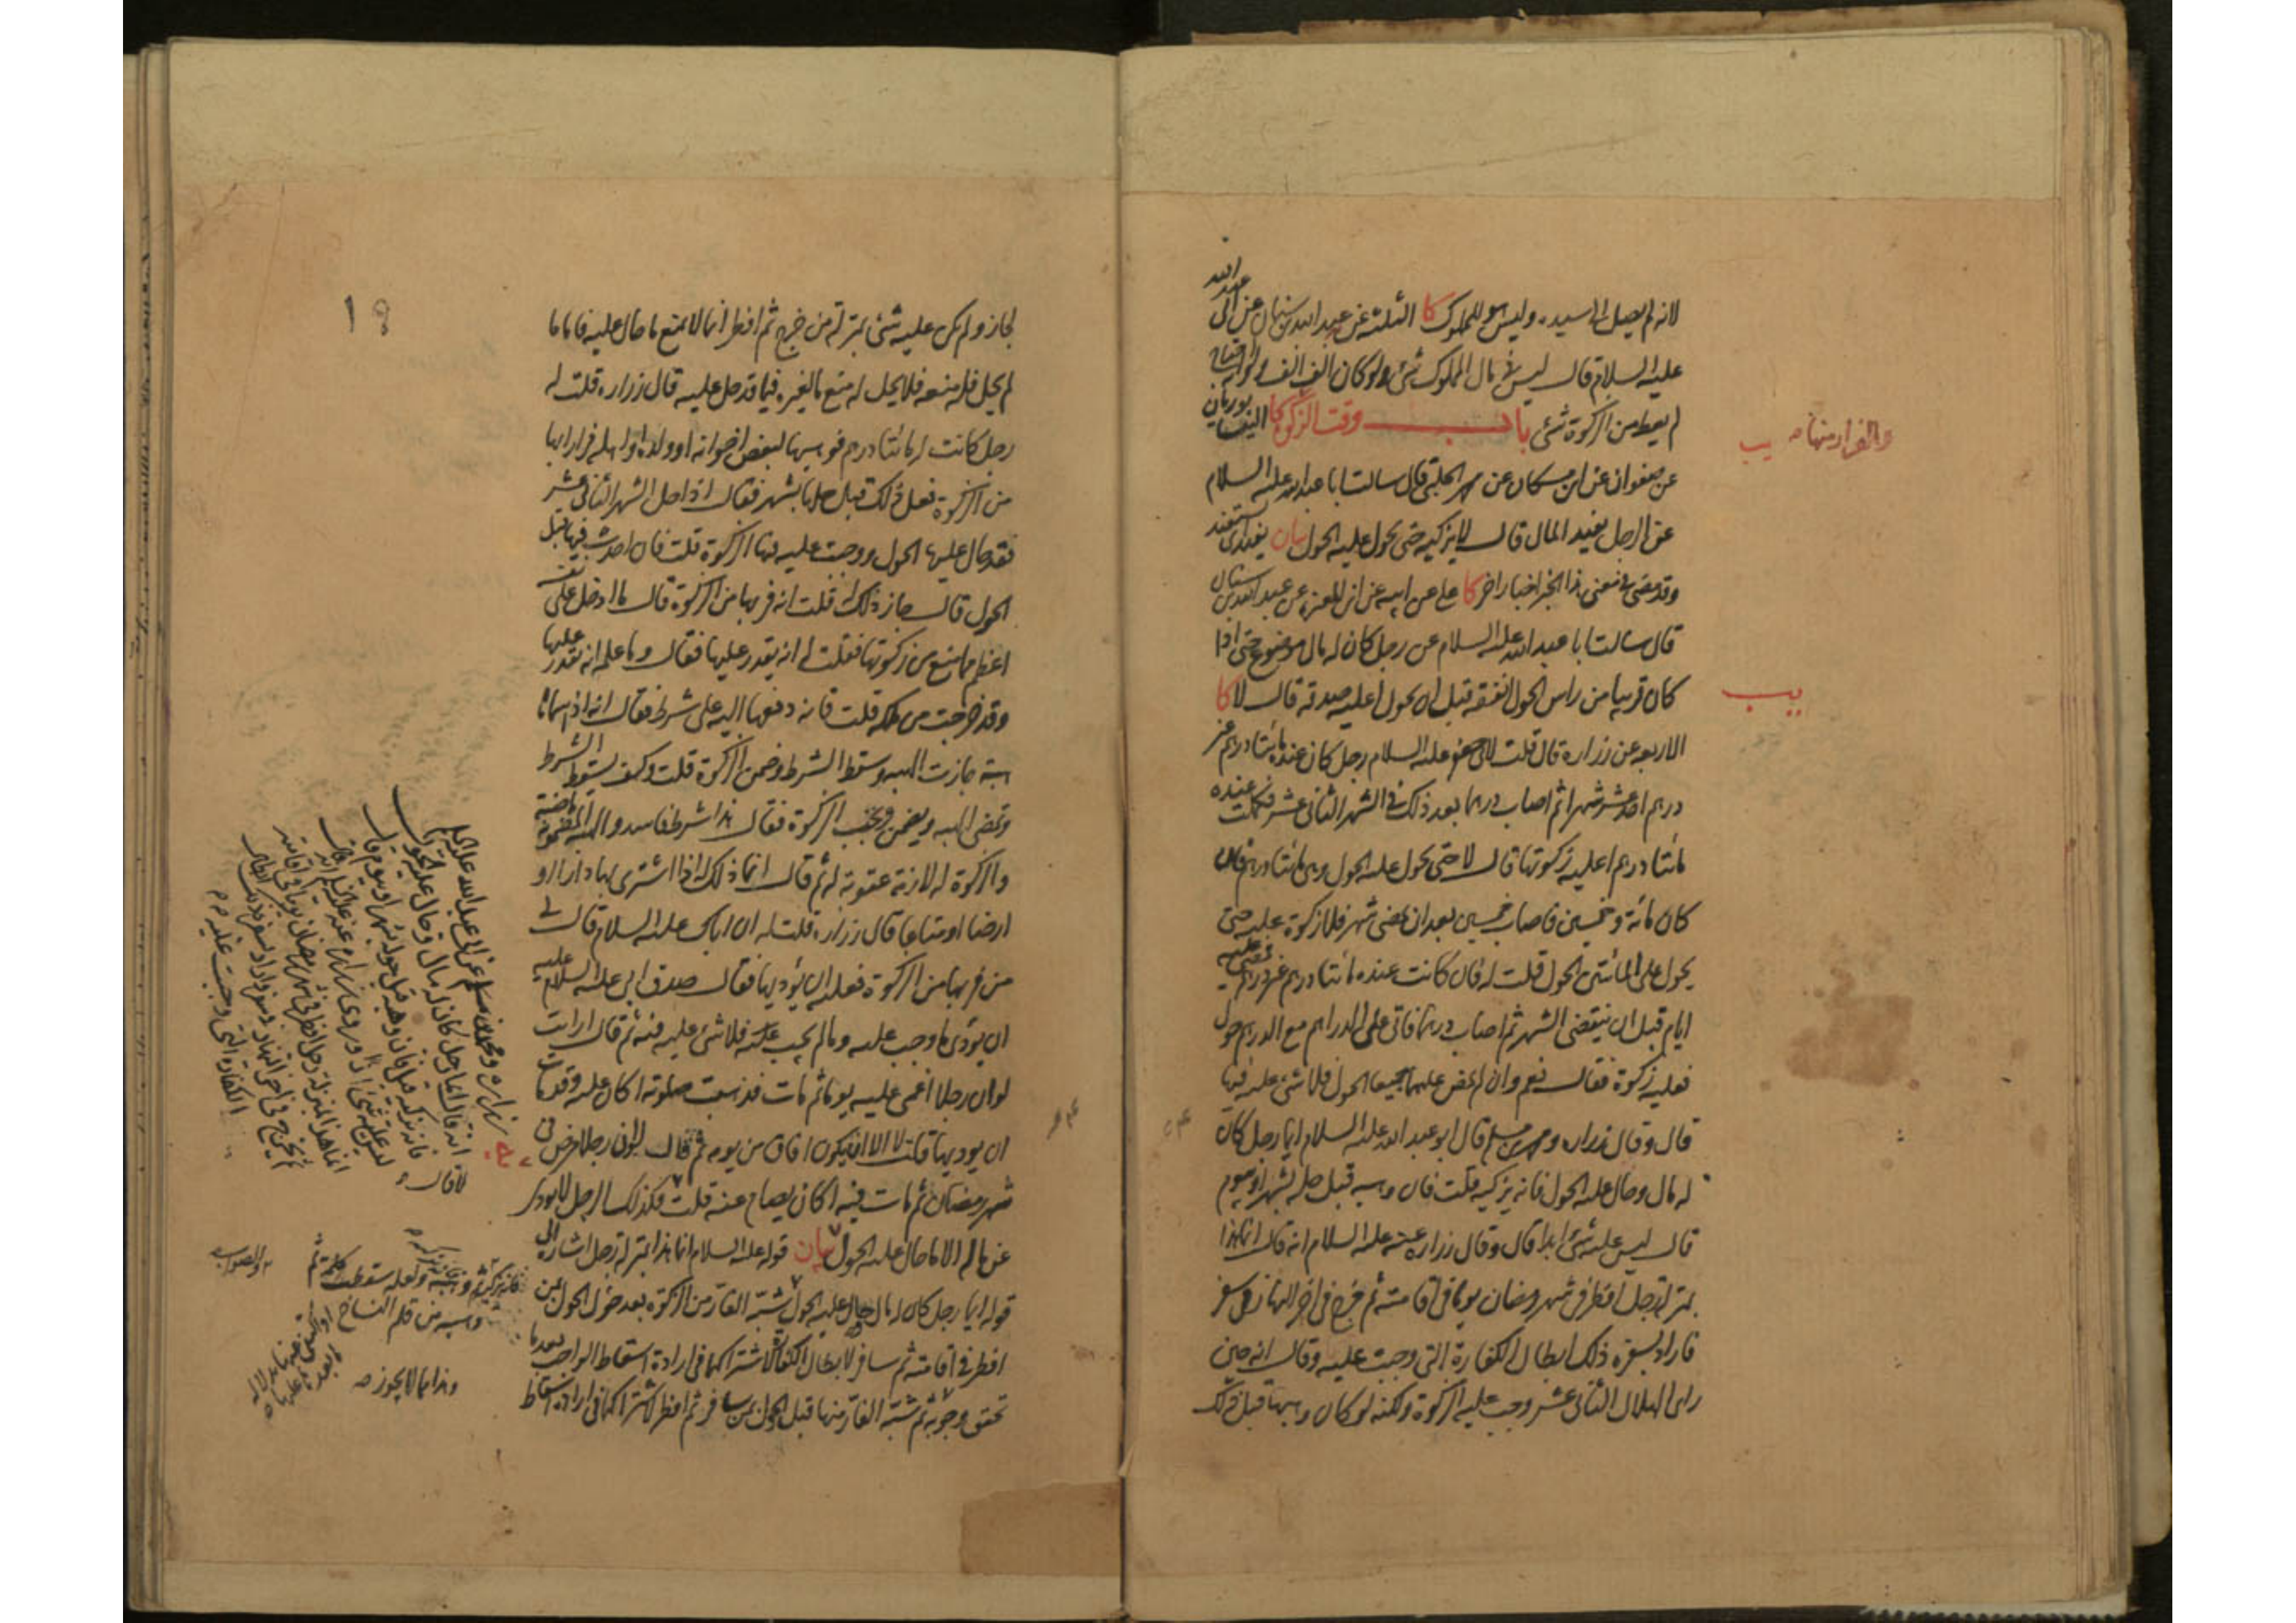 لانه لم يصل الى سيده وليس هو للمملوك كا الثلثة عن عبد الله بن سنان عن ابى عبد الله
عليه السلام قال ليس فى مال المملوك شئ ولو كان الف الف ولو احتاج
لم يعط من الزكوة شئ باب وقت الزكوة كا
والفرار منها صح
عن صفوان عن ابن مسكان عن محمد الحلبى قال سالت ابا عبد الله عليه السلام
عن الرجل يفيد المال قال لا يزكيه حتى يحول عليه الحول بيان يفيد اى يستفيد
وقد مضى فى معنى هذا الخبر اخبار اخر كا على عن ابيه عن ابن المغيرة عن عبد الله بن سنان
قال سالت ابا عبد الله عليه السلام عن رجل كان له مال موضوع حتى اذا
كان قريبا من راس الحول انفقه قبل ان يحول اعليه صدقة قال لا كا
الاربعة عن زراره قال قلت لابى جعفر عليه السلام رجل كان عنده مائتا درهم غير
درهم احد عشر شهرا ثم اصاب درهما بعد ذلك فى الشهر الثانى عشر فكملت عنده
مائتا درهم اعليه زكوتها قال لا حتى يحول عليه الحول وهى مائتا درهم فان
كان مائة وخمسين فاصاب خمسين بعد ان يمضى شهر فلا زكوة عليه حتى
يحول على المائتين الحول قلت له فان كانت عنده مائتا درهم غير درهم فمضى عليه
ايام قبل ان ينقضى الشهر ثم اصاب درهما فاتى على الدراهم مع الدرهم حول
فعليه زكوة فقال نعم وان لم يمض عليها جميعا الحول فلا شئ عليه فيها
قال وقال زراره ومحمد بن مسلم قال ابو عبد الله عليه السلام ايما رجل كان
له مال وحال عليه الحول فانه يزكيه قلت فان وهبه قبل حله بشهر او بيوم
قال ليس عليه شئ ابدا قال وقال زراره عنه عليه السلام انه قال انما هذا
بمنزلة رجل افطر فى شهر رمضان يوما فى اقامته ثم خرج فى اخر النهار فى سفر
فاراد بسفره ذلك ابطال الكفارة التى وجبت عليه وقال انه حين
راى الهلال الثانى عشر وجبت عليه الزكوة ولكنه لو كان وهبها قبل ذلك
لجاز ولم يكن عليه شئ بمنزلة من خرج ثم افطر انما لا يمنع ما حال عليه فاما ما
لم يحل فله منعه فلا يحل له منع مال غيره فيما قد حل عليه قال زراره قلت له
رجل كانت له مائتا درهم فوهبها لبعض اخوانه او ولده او اهله فرارا بها
من الزكوة فعل ذلك قبل حلها بشهر فقال اذا دخل الشهر الثانى عشر
فقد حال عليها الحول ووجبت عليه فيها الزكوة قلت فان احدث فيها قبل
الحول قال جاز ذلك له قلت انه فر بها من الزكوة قال ما ادخل على نفسه
اعظم مما منع من زكوتها فقلت له انه يقدر عليها فقال وما علمه انه يقدر عليها
وقد خرجت من ملكه قلت فانه دفعها اليه على شرط فقال انه اذا سماها
هبة جازت الهبة وسقط الشرط وضمن الزكوة قلت وكيف يسقط الشرط
وتمضى الهبة ويضمن وتجب الزكوة فقال هذا شرط فاسد والهبة المضمونة ماضية
والزكوة له لازمة عقوبة له ثم قال انما ذلك له اذا اشترى بها دارا او
ارضا او متاعا قال زراره قلت له ان اباك عليه السلام قال لى
من فر بها من الزكوة فعليه ان يؤديها فقال صدق ابى عليه السلام عليه
ان يؤدى ما وجب عليه وما لم يجب عليه فلا شئ عليه فيه ثم قال ارايت
لو ان رجلا اغمى عليه يوما ثم مات فذهبت صلوته اكان عليه وقد مات
ان يوديها قلت لا الا ان يكون افاق من يومه ثم قال لو ان رجلا مرض فى
شهر رمضان ثم مات فيه اكان يصام عنه قلت لا قال فكذلك الرجل لا يودى
عن ماله الا ما حال عليه الحول بيان قوله عليه السلام انما هذا بمنزلة رجل اشارة الى
قوله ايما رجل كان له مال وحال عليه الحول شبه الفار من الزكوة بعد حول الحول بمن
افطر فى اقامته ثم سافر لابطال الكفارة لاشتراكهما فى ارادة اسقاط الواجب بعد ما
تحقق وجوبه ثم شبه الفار منها قبل الحول بمن سافر ثم افطر لاشتراكهما فى ارادة اسقاط
زراره ومحمد بن مسلم عن ابى عبد الله عليه السلام
انه قال ايما رجل كان له مال وحال عليه الحول
فانه يزكيه قيل فان وهبه قبل حوله بشهر او بيوم قال
ليس عليه شئ اذا وروى زراره عنه عليه السلام انه قال
انما هذا بمنزلة رجل افطر فى شهر رمضان يوما فى اقامته
ثم يخرج فى اخر النهار فى سفر واراد بسفره ذلك ابطال
الكفارة التى وجبت عليه
والصواب
وهبه من قلم الناسخ
وهذا مما لا يجوز صح